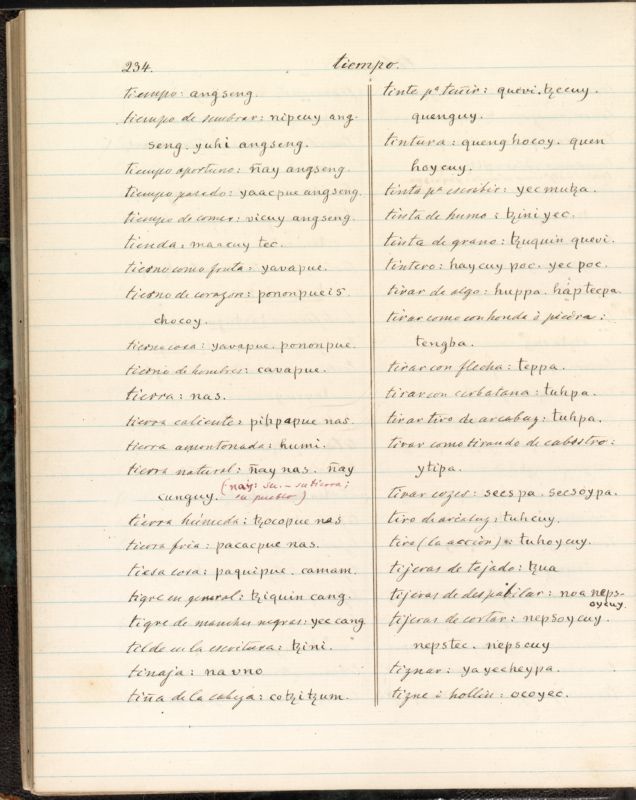 234.
tiempo.
tiempo: angseng.
tiempo de sembrar: nipcuy ang-
seng. yuhi angseng.
tiempo oportuno: ñay angseng.
tiempo pasado: yaacpue angseng.
tiempo de comer: vicuy angseng.
tienda: maacuy tec.
tierno como fruta: yavapue.
tierno de corazon: pononpueis
chocoy.
tierna cosa: yavapue. pononpue.
tierno de hombres: cavapue.
tierra: nas.
tierra caliente: pihpapue nas.
tierra amontonada: humi.
tierra natural: ñay nas. ñay
cunguy. (nay: su. - su tierra;
su pueblo)
tierra húmeda: tzocopue nas
tierra fria: pacacpue nas.
tiesa cosa: paquipue. camam.
tigre en general: tziquin cang.
tigre de manchas negras: yec cang
tilde en la escritura: tzini.
tinaja: navno
tiña de la cabeza: cotzitzum.
tinte pa. teñir: quevi.tzecuy.
quenguy.
tintura: queng hocoy. quen
hoycuy.
tinta pa. escribir: yecmutza.
tinta de humo: tziniyec.
tinta de grano: tzuquin quevi.
tintero: haycuy poc. yec poc.
tirar de algo: huppa. haptecpa.
tirar como con honda ò piedra:
tengba.
tirar con flecha: teppa.
tirar con cerbatana: tuhpa.
tirar tiro de arcabuz: tuhpa.
tirar como tirando de cabestro:
ytipa.
tirar cozes: secspa. secsoypa.
tiro de arcabuz: tuhcuy.
tiro (la acción): tuhoycuy.
tijeras de tejado: tzua
tijeras de despabilar: noa neps-
oycuy.
tijeras de cortar: nepsoycuy.
nepstec. nepscuy
tiznar: yayecheypa.
tizne ò hollin: ocoyec.